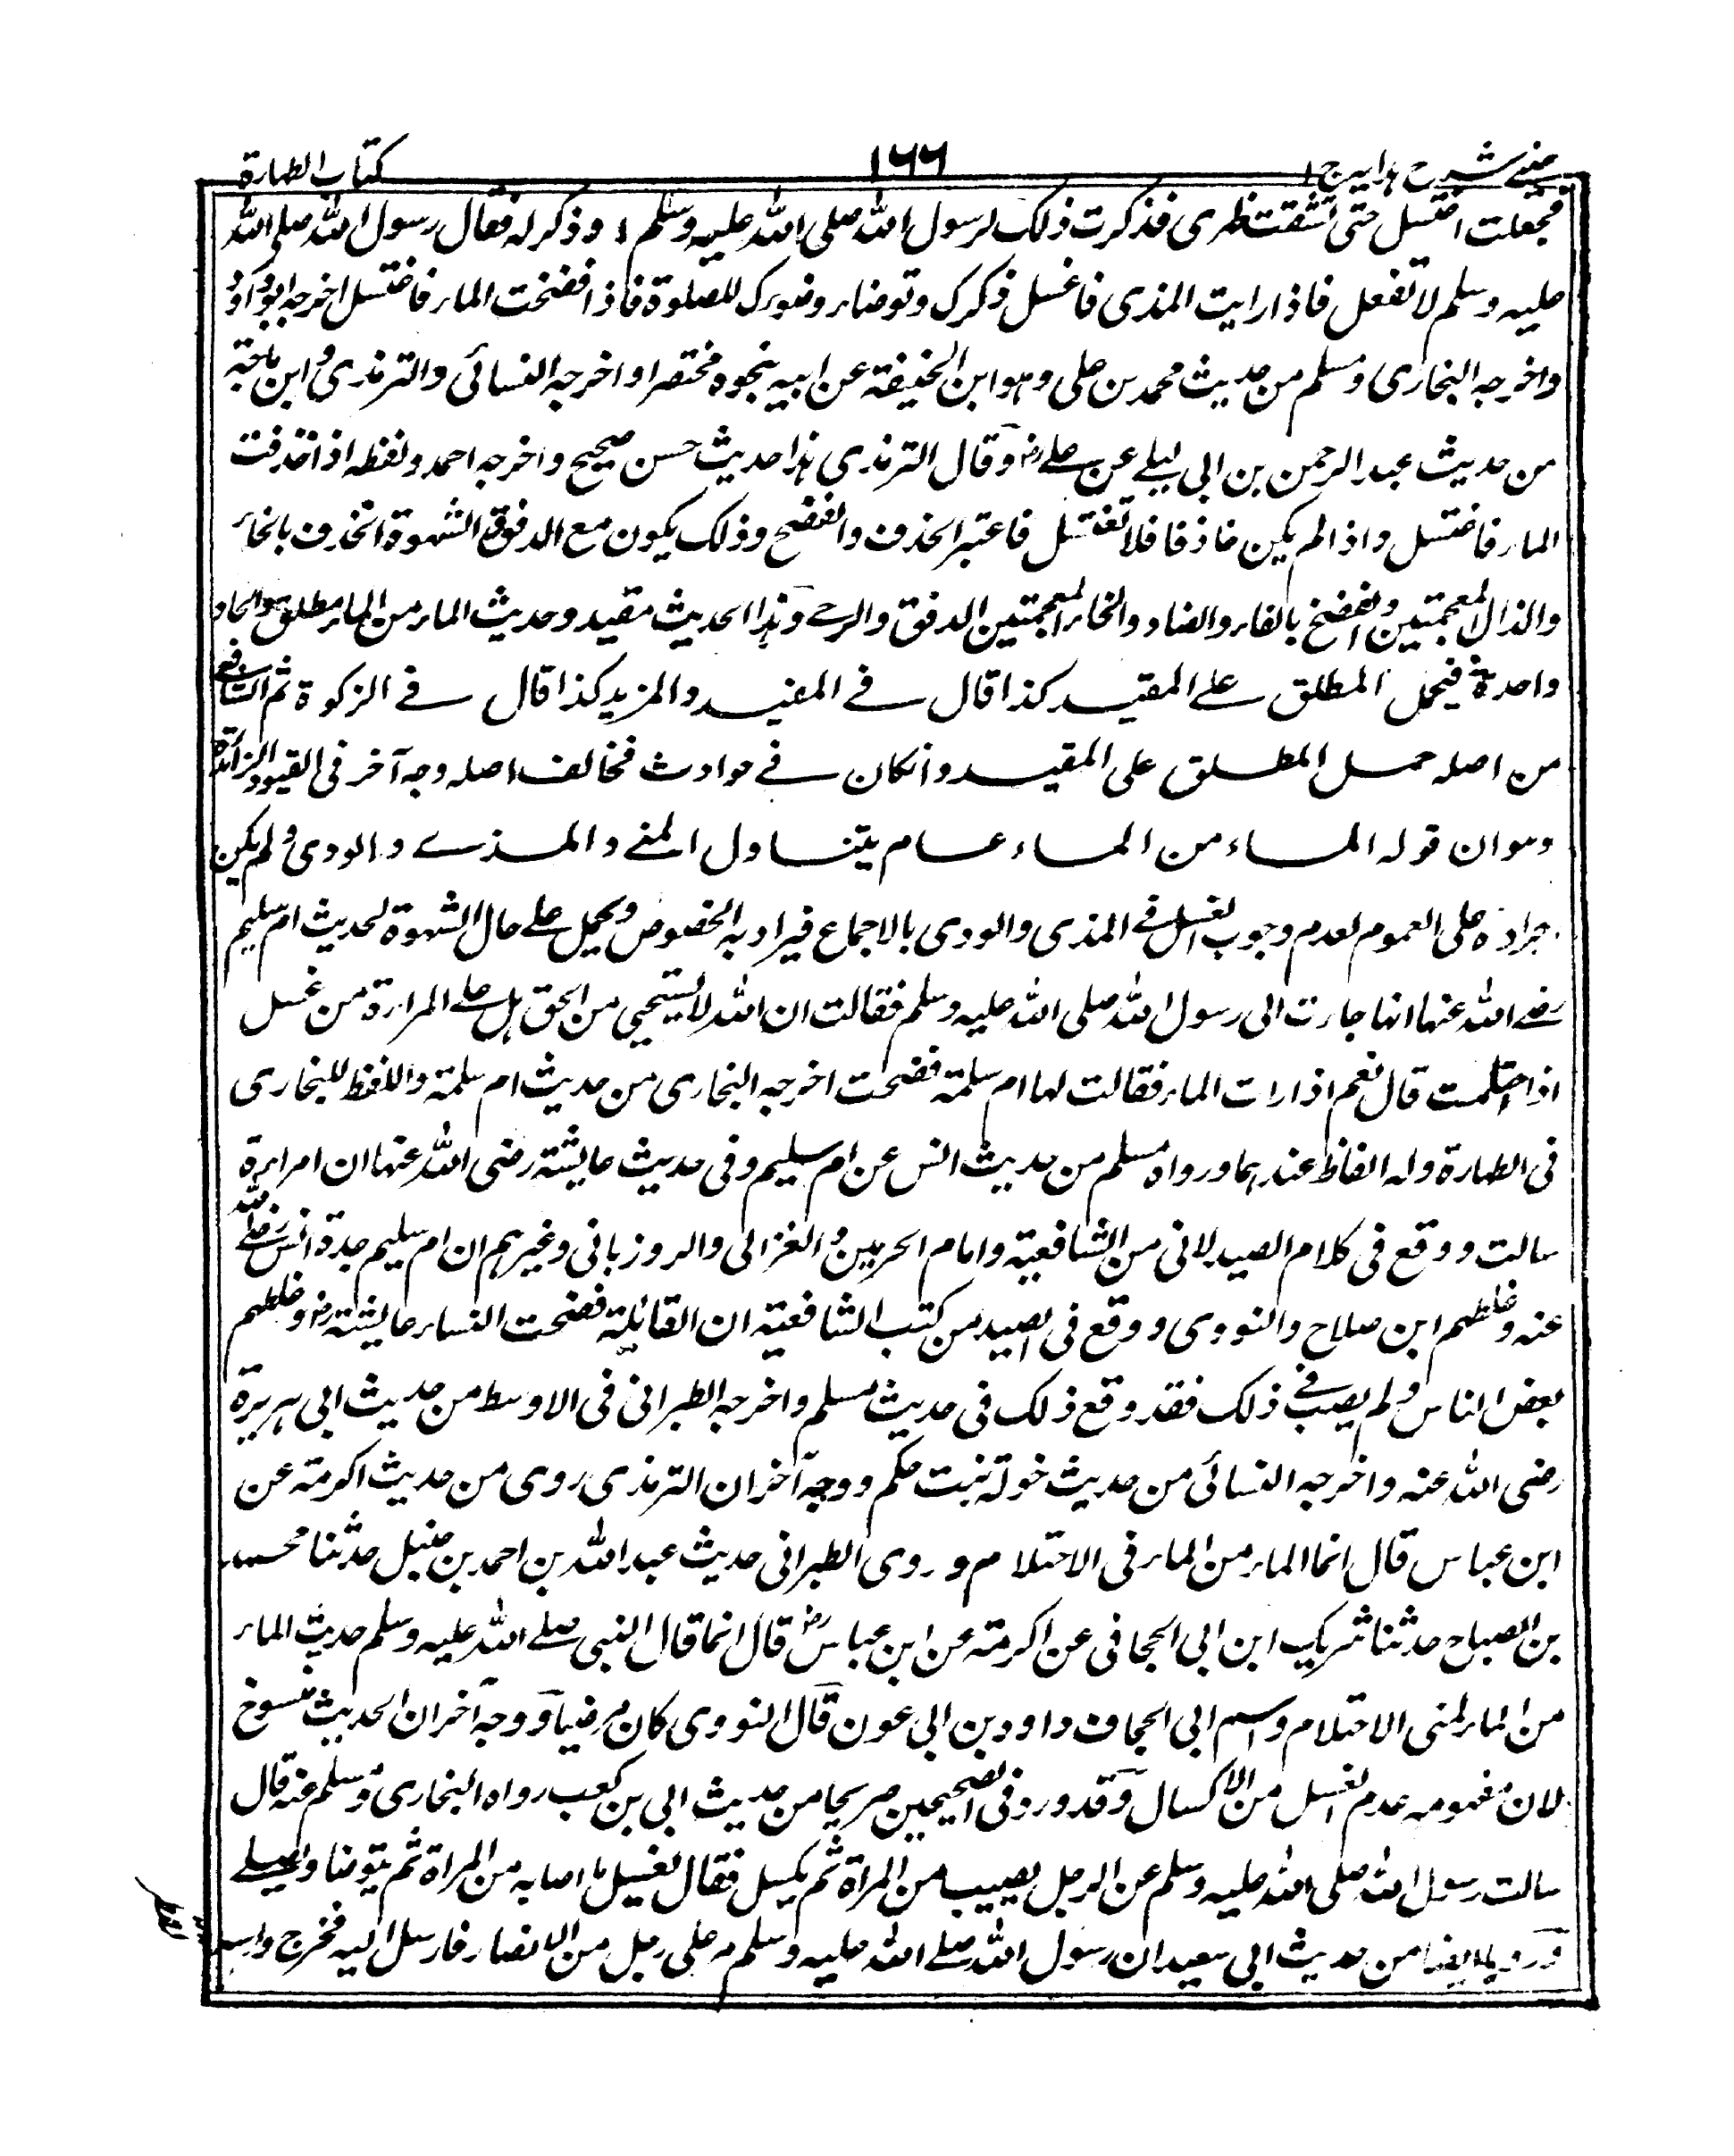 عينى شرح هدايه ج ١
١٦٦
كتاب الطهارة
فجعلت اغتسل حتى تشققت ظهرى فذكرت ذلك لرسول الله صلى الله عليه وسلم او ذكر له فقال رسول الله صلى الله
عليه وسلم لا تفعل فاذا رايت المذى فاغسل ذكرك وتوضاء وضوءك للصلوة فاذا فضخت الماء فاغتسل اخرجه ابوداؤد
واخرجه البخارى ومسلم من حديث محمد بن على وهو ابن الحنيفة عن ابيه بنحوه مختصرا واخرجه النسائى والترمذى وابن ماجة
من حديث عبد الرحمن بن ابى ليلے عن علے رض وقال الترمذى هذا حديث حسن صحيح واخرجه احمد ولفظه اذا خذفت
الماء فاغتسل واذا لم يكن خاذفا فلا تغتسل فاعتبر الخذف والفضخ وذلك يكون مع الدفوق الشهوة الخذف بالخاء
والذال المعجمتين والفضخ بالفاء والضاد والخاء المعجمتين الدفق والرے وهذا الحديث مقيد وحديث الماء من الماء مطلق والحادثة
واحدة فيحمل المطلق علے المقيد كذا قال فے المفيد والمزيد كذا قال فے الزكوة ثم الشافعے
من اصله حمل المطلق على المقيد وانكان فے حوادث فخالف اصله وجه آخر فى القيود الزائدة
وهو ان قوله الماء من الماء عام يتناول المنے والمذے والودى ولم يكن
اجراؤه على العموم لعدم وجوب الغسل فے المذى والودى بالاجماع فيراد به الخصوص ويحمل علے حال الشهوة لحديث ام سليم
رضے الله عنها انها جاءت الى رسول الله صلى الله عليه وسلم فقالت ان الله لا يستحيى من الحق هل علے المراءة من غسل
اذا احتلمت قال نعم اذا رات الماء فقالت لها ام سلمة فضحت اخرجه البخارى من حديث ام سلمة واللفظ للبخارى
فى الطهارة وله الفاظ عندهما ورواه مسلم من حديث انس عن ام سليم وفى حديث عايشة رضى الله عنها ان امراءة
سالت ووقع فى كلام الصيدلانى من الشافعية وامام الحرمين والغزالى والروزبانى وغيرهم ان ام سليم جدة انس رضے الله
عنه وغلطهم ابن صلاح والنووى ووقع فى الصيد من كتب الشافعية ان القائلة فضحت النساء عايشة رض وغلطهم
بعض الناس ولم يصب فے ذلك فقد وقع ذلك فى حديث مسلم واخرجه الطبرانى فى الاوسط من حديث ابى هريرة
رضى الله عنه واخرجه النسائى من حديث خولة بنت حكم ووجه آخر ان الترمذى روى من حديث اكرمة عن
ابن عباس قال انما الماء من الماء فى الاحتلام وروى الطبرانى حديث عبد الله بن احمد بن حنبل حدثنا محمد
بن الصباح حدثنا شريك ابن ابى الحجافى عن اكرمة عن ابن عباس رض قال انما قال النبى صلے الله عليه وسلم حديث الماء
من الماء لمنى الاحتلام واسم ابى الحجاف داود بن ابى عون قال النووى كان مرضيا ووجه آخر ان الحديث منسوخ
لان مفهومه عدم الغسل من الاكسال وقد ورد فى الصحيحين صريحا من حديث ابى بن كعب رواه البخارى ومسلم عنه قال
سالت رسول الله صلى الله عليه وسلم عن الرجل يصيب من المراة ثم يكسل فقال يغسل ما اصابه من المراة ثم يتوضا ويصلے
ورويا ايضا من حديث ابى سعيد ان رسول الله صلے الله عليه وسلم مر على رجل من الانصار فارسل اليه فخرج وراسه